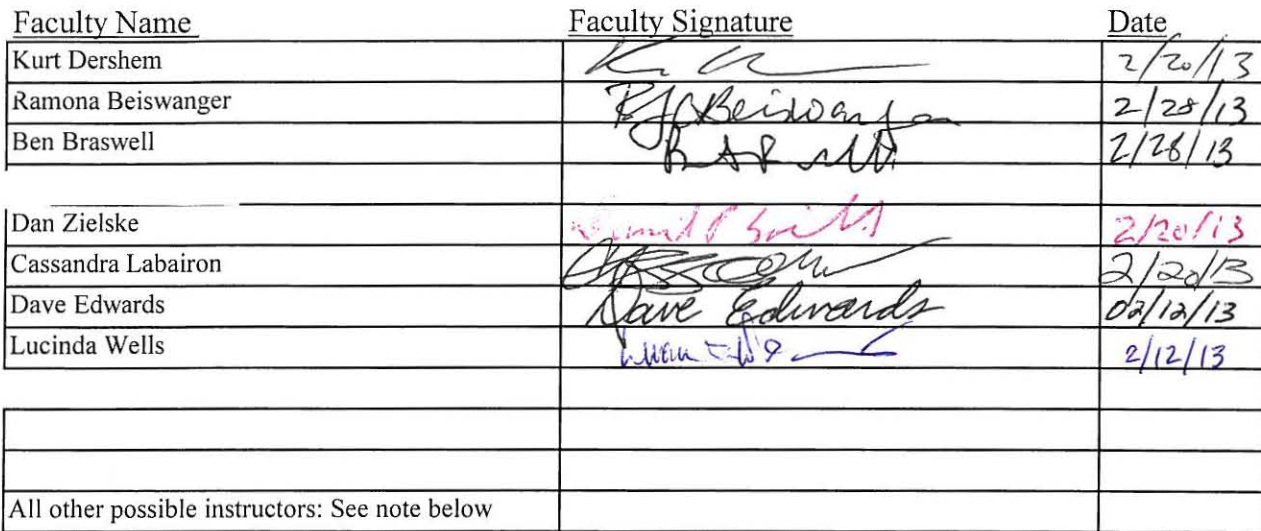 Faculty Name Faculty Signature Date
Kurt Dershem 2/20/13
Ramona Beiswanger RJ Beiswanger 2/28/13
Ben Braswell 2/28/13
Dan Zielske 2/20/13
Cassandra Labairon 2/20/13
Dave Edwards Dave Edwards 02/12/13
Lucinda Wells 2/12/13
All other possible instructors: See note below